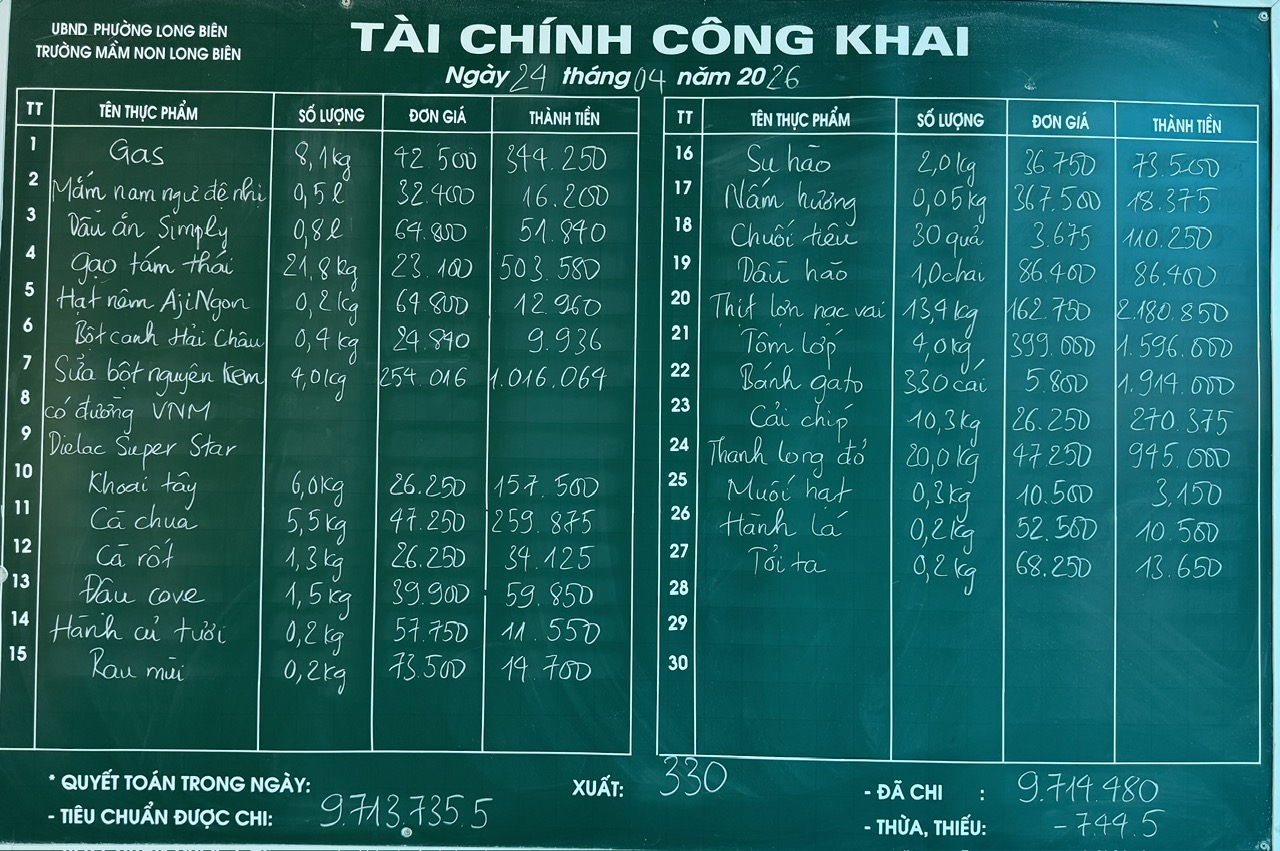 UBND PHƯỜNG LONG BIÊN
TRƯỜNG MẦM NON LONG BIÊN
TÀI CHÍNH CÔNG KHAI
Ngày 24 tháng 04 năm 2026
TT TÊN THỰC PHẨM SỐ LƯỢNG ĐƠN GIÁ THÀNH TIỀN
1 Gas 8,1kg 42.500 344.250
2 Mắm nam ngư đệ nhị 0,5l 32.400 16.200
3 Dầu ăn Simply 0,8l 64.800 51.840
4 Gạo tám thái 21,8kg 23.100 503.580
5 Hạt nêm AjiNgon 0,2kg 64.800 12.960
6 Bột canh Hải Châu 0,4kg 24.840 9.936
7 Sữa bột nguyên kem 4,0kg 254.016 1.016.064
8 có đường VNM
9 Dielac Super Star
10 Khoai tây 6,0kg 26.250 157.500
11 Cà chua 5,5kg 47.250 259.875
12 Cà rốt 1,3kg 26.250 34.125
13 Đậu cove 1,5kg 39.900 59.850
14 Hành củ tươi 0,2kg 57.750 11.550
15 Rau mùi 0,2kg 73.500 14.700
TT TÊN THỰC PHẨM SỐ LƯỢNG ĐƠN GIÁ THÀNH TIỀN
16 Su hào 2,0kg 36.750 73.500
17 Nấm hương 0,05kg 367.500 18.375
18 Chuối tiêu 30 quả 3.675 110.250
19 Dầu hào 1,0chai 86.400 86.400
20 Thịt lợn nạc vai 13,4kg 162.750 2.180.850
21 Tôm lớp 4,0kg 399.000 1.596.000
22 Bánh gato 330 cái 5.800 1.914.000
23 Cải chíp 10,3kg 26.250 270.375
24 Thanh long đỏ 20,0kg 47.250 945.000
25 Muối hạt 0,3kg 10.500 3.150
26 Hành lá 0,2kg 52.500 10.500
27 Tỏi ta 0,2kg 68.250 13.650
28
29
30
* QUYẾT TOÁN TRONG NGÀY: XUẤT: 330 - ĐÃ CHI : 9.714.480
- TIÊU CHUẨN ĐƯỢC CHI: 9.713.735.5 - THỪA, THIẾU: -744.5